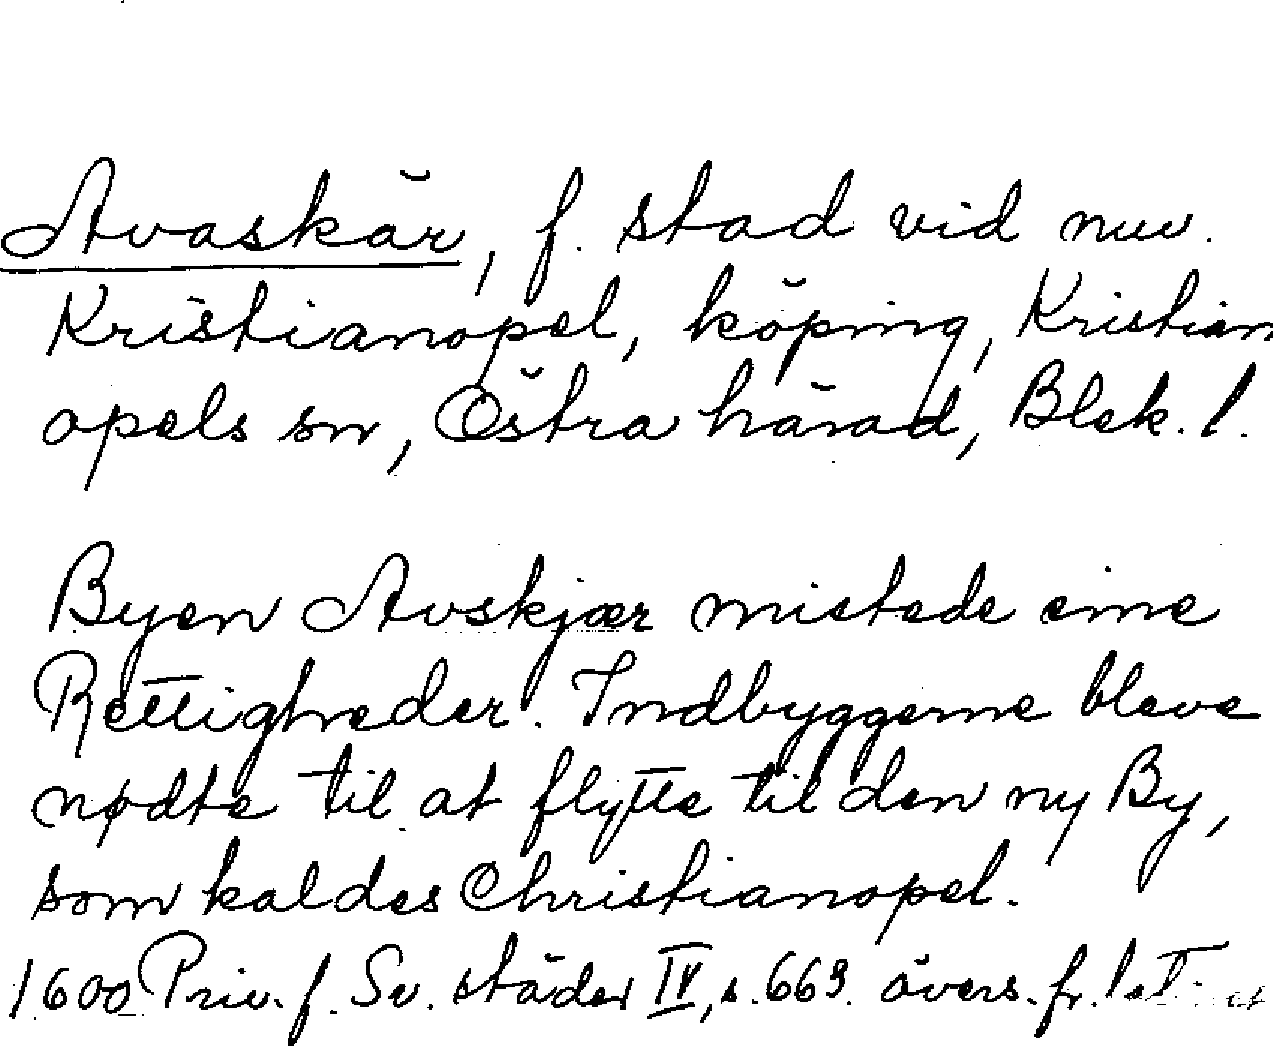 Avaskär, f. stad vid nuv.
Kristianopel, köping, Kristian
opels sn, Östra härad, Blek. l.
Byen Avskjær mistede sine
Rettigheder. Indbyggerne bleve
nødte til at flytte til den ny By,
som kaldes Christianopel.
1600 Priv. f. Sv. städer IV, s. 663. övers. fr. lat.